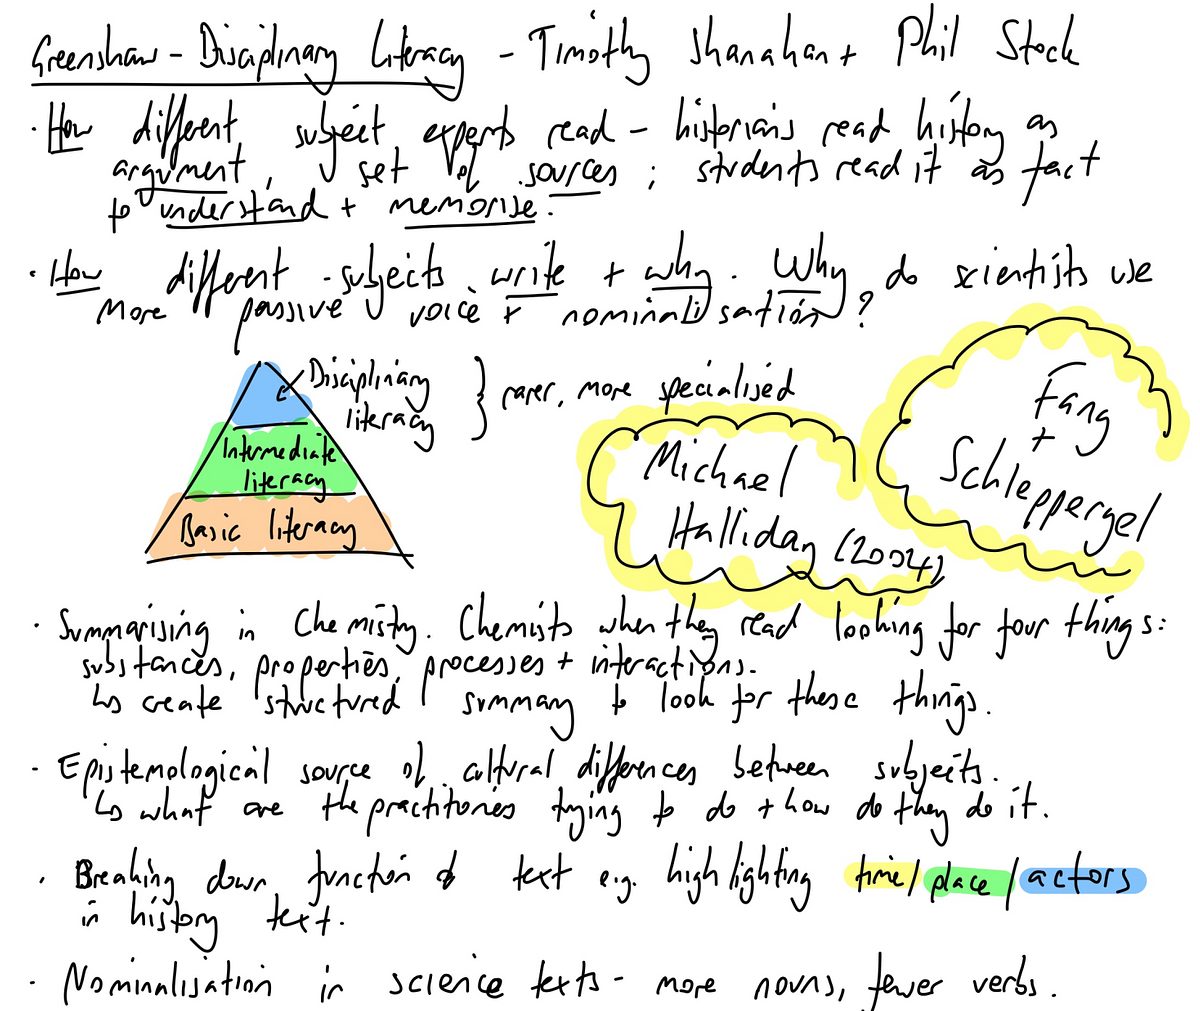 Greenshaw - Disciplinary Literacy - Timothy Shanahan + Phil Stock
· How different subject experts read - historians read history as
argument, set of sources; students read it as fact
to understand + memorise.
· How different subjects write + why. Why do scientists use
more passive voice + nominalisation?
Disciplinary
literacy
} rarer, more specialised
Intermediate
literacy
Basic literacy
Michael
Halliday (2004)
Fang
+
Schleppergel
· Summarising in Chemistry. Chemists when they read looking for four things:
substances, properties, processes + interactions.
↳ create structured summary to look for these things.
- Epistemological source of cultural differences between subjects.
↳ what are the practitories trying to do + how do they do it.
· Breaking down function of text e.g. highlighting time/place/actors
in history text.
· Nominalisation in science texts - more nouns, fewer verbs.